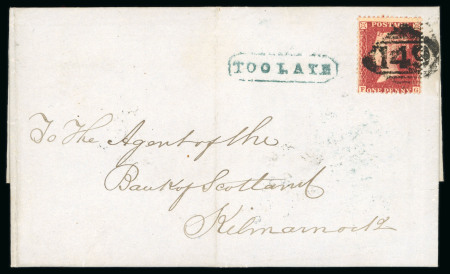 TOO LATE
POSTAGE
149
ONE PENNY
To The Agent of the
Bank of Scotland
Kilmarnock